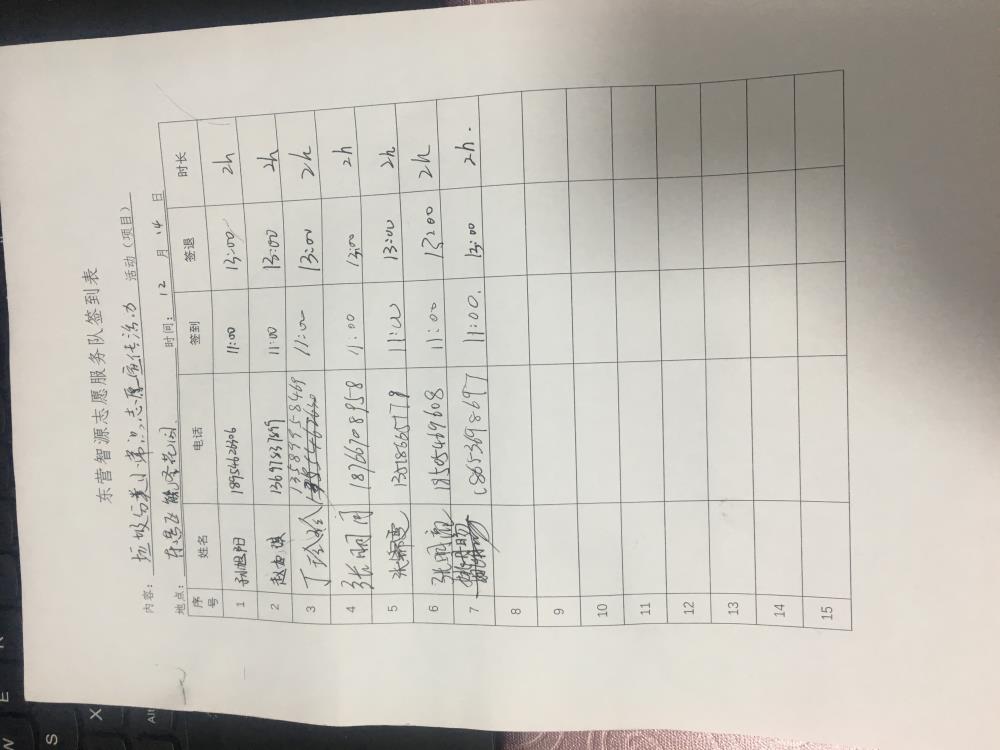 东营智源志愿服务队签到表
内容: 垃圾分类小常识志愿宣传活动 活动(项目)
地点: 时间: 12 月 14 日
序号 姓名 电话 签到 签退 时长
1 孙旭阳 18954626306 11:00 13:00 2h
2 11:00 13:00 2h
3 丁玲玲 13589958469 11:00 13:00 2h
4 张丽阁 18766708958 11:00 13:00 2h
5 11:00 13:00 2h
6 18505469608 11:00 13:00 2h
7 18653698697 11:00. 13:00 2h.
8
9
10
11
12
13
14
15
E
W
S
X
Alt